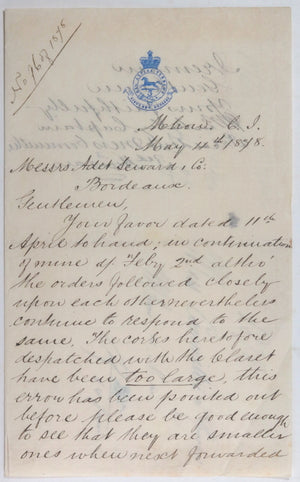 No 96 of 1878
Mhow C. I.
May 11th /1878.
Messrs Adet Seward & Co.
Bordeaux.
Gentlemen,
Your favor dated 11th
April to hand; in continuation
of mine of Feby 2nd altho'
the orders followed closely
upon each other nevertheless
continue to respond to the
same. The corks heretofore
despatched with the Claret
have been too large, this
error has been pointed out
before please be good enough
to see that they are smaller
ones when next forwarded